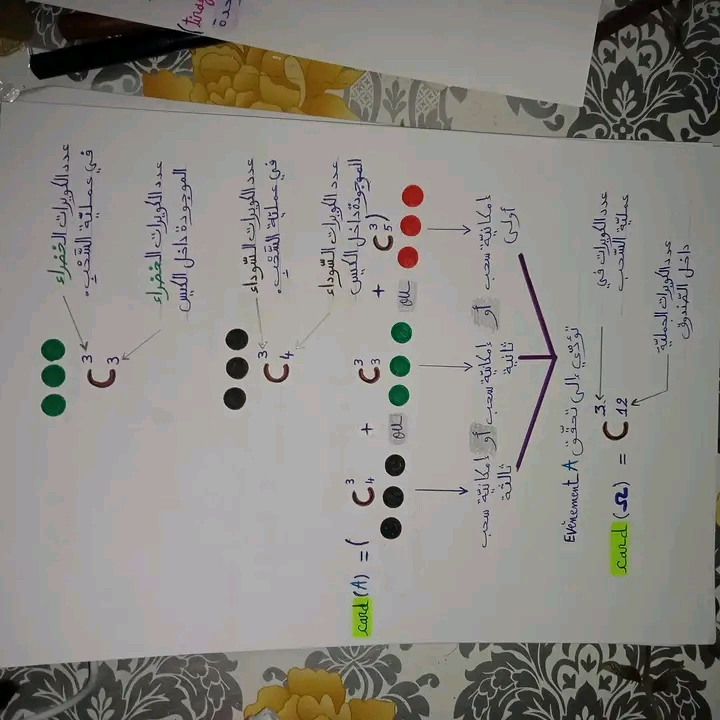 عدد الكويرات الخضراء
في عمليّة السّحب.
C³₃
عدد الكويرات الخضراء
الموجودة داخل الكيس
عدد الكويرات السّوداء
في عمليّة السّحب.
C³₄
عدد الكويرات السّوداء
الموجودة داخل الكيس
card (A) = ( C³₄ + C³₃ + C³₅ )
ou ou
إمكانيّة سحب أولى أو إمكانيّة سحب ثانية أو إمكانيّة سحب ثالثة
تؤدّي إلى تحقّق Evènement A
عدد الكويرات في
عمليّة السّحب
card (Ω) = C³₁₂
عدد الكويرات الجمليّة
داخل الصّندوق